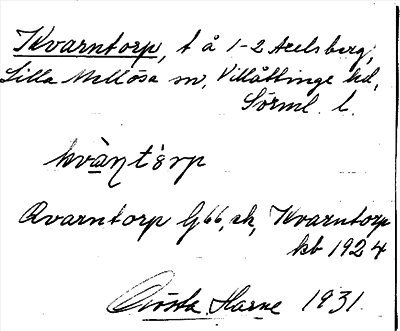 Kvarntorp, t å 1-2 Axelsberg,
Lilla Mellösa sn, Villåttinge hd,
Sörml. l.
kvàṇtɷrp
Qvarntorp Gb6, ak, Kvarntorp
kb 1924
Gösta Harne 1931.